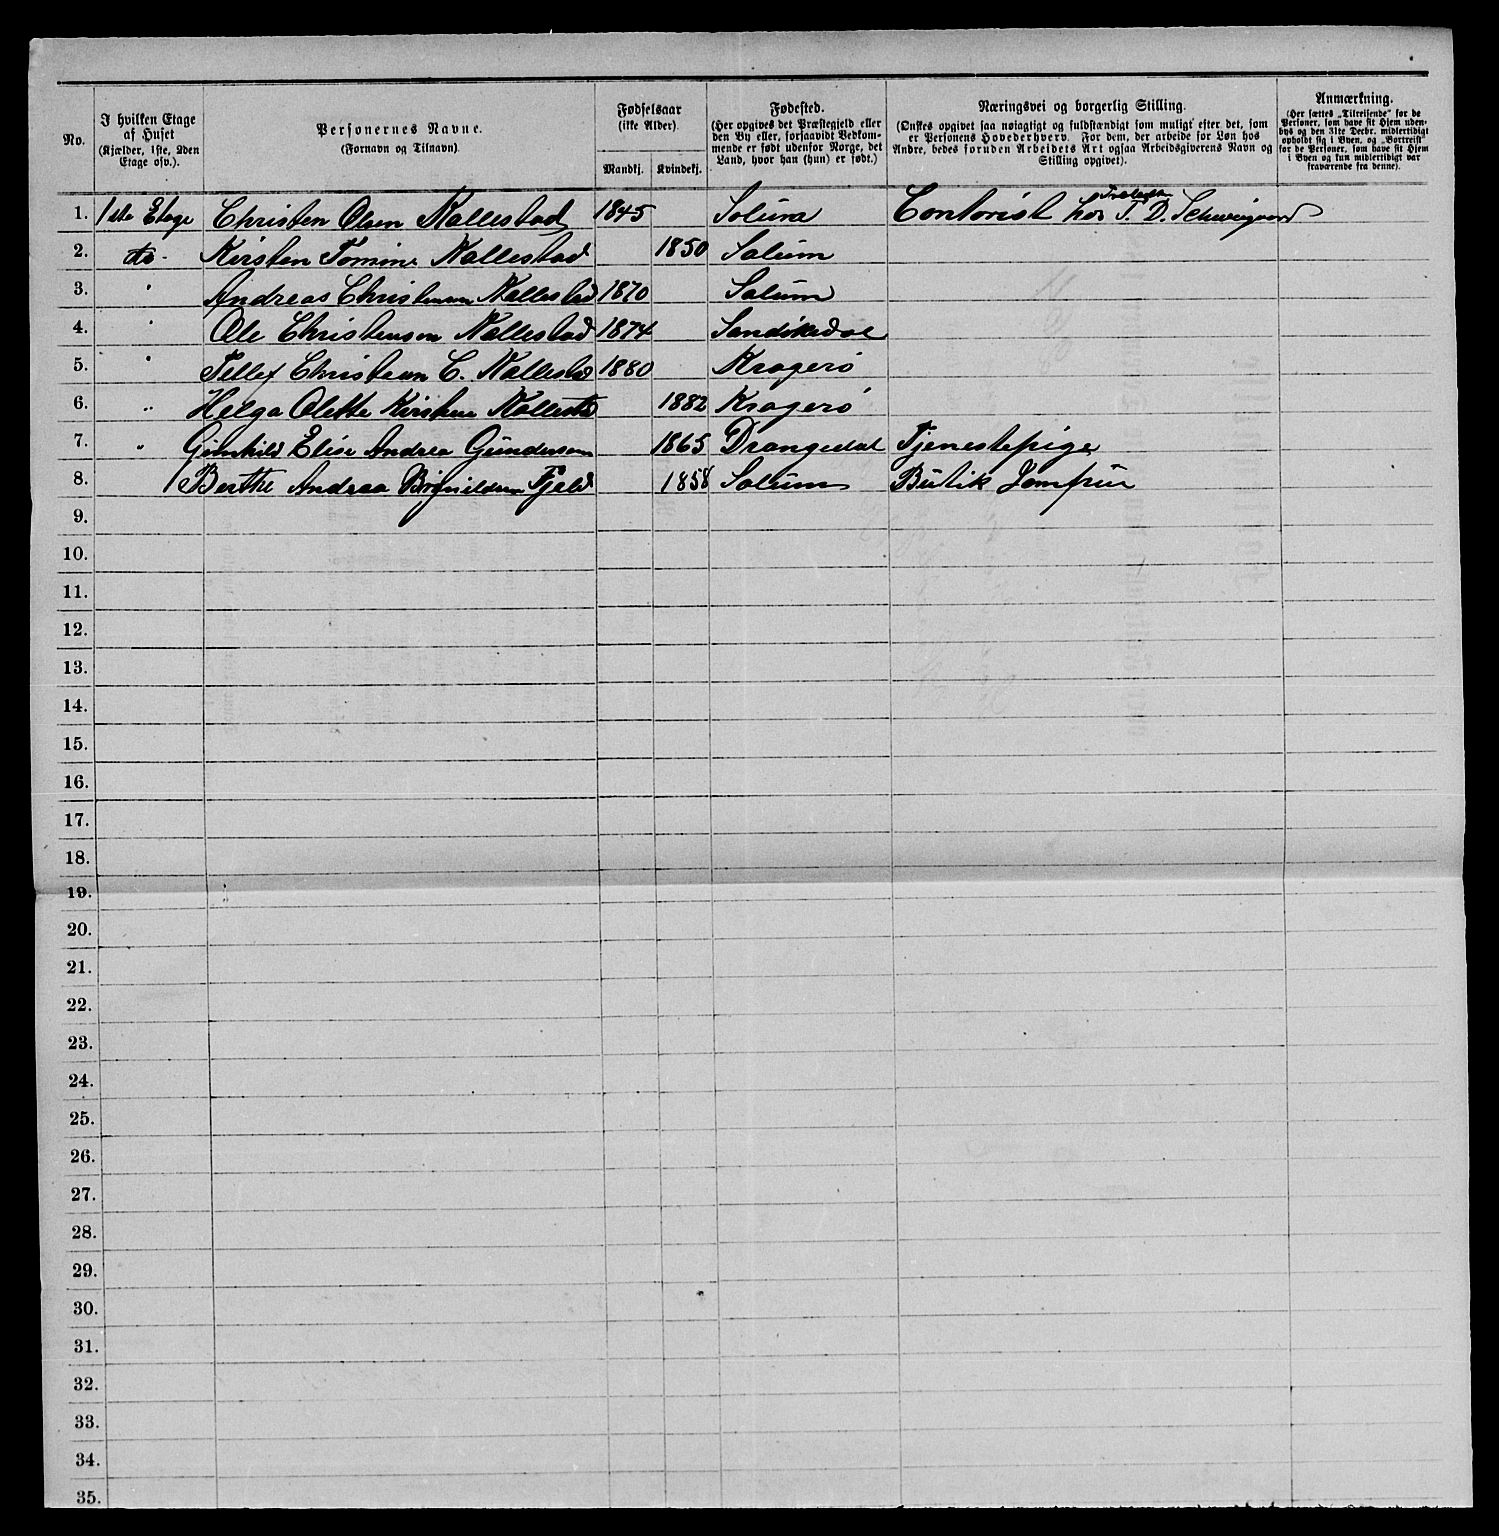 No.
I hvilken Etage
af Huset
(Kjælder, 1ste, 2den
Etage osv.).
Personernes Navne.
(Fornavn og Tilnavn).
Fødselsaar
(ikke Alder).
Mandkj.
Kvindekj.
Fødested.
(Her opgives det Præstegjeld eller
den By eller, forsaavidt Vedkom-
mende er født udenfor Norge, det
Land, hvor han (hun) er født.)
Næringsvei og borgerlig Stilling.
(Ønskes opgivet saa nøiagtig og fuldstændigt som muligt efter det, som
er Personens Hovederhverv. For dem, der arbeide for Løn hos
Andre, bedes foruden Arbeidets Art ogsaa Arbeidsgiverens Navn og
Stilling opgivet).
Anmærkning.
(Her sættes „Tilreisende" for de
Personer, som have sit Hjem uden-
bys og den 31te Decbr. midlertidigt
opholdt sig i Byen, og „Bortreist"
for de Personer, som have sit Hjem
i Byen og kun midlertidigt var
fraværende fra denne).
1. 1ste Etage Christen Olsen Kallestad 1845 Solum Contorist hos T. D. Schweigaard
2. do. Kirsten Tomine Kallestad 1850 Solum
3. " Andreas Christensen Kallestad 1870 Solum
4. " Ole Christensen Kallestad 1874 Sandøkedal
5. " Tellef Christian C. Kallestad 1880 Kragerø
6. " Helga Olette Kirstine Kallestad 1882 Kragerø
7. " Gunhild Elise Andrea Gundersen 1865 Drangedal Tjenestepige
8. Berthe Andrea Fjeld 1858 Solum Butik Jomfru
9.
10.
11.
12.
13.
14.
15.
16.
17.
18.
19.
20.
21.
22.
23.
24.
25.
26.
27.
28.
29.
30.
31.
32.
33.
34.
35.